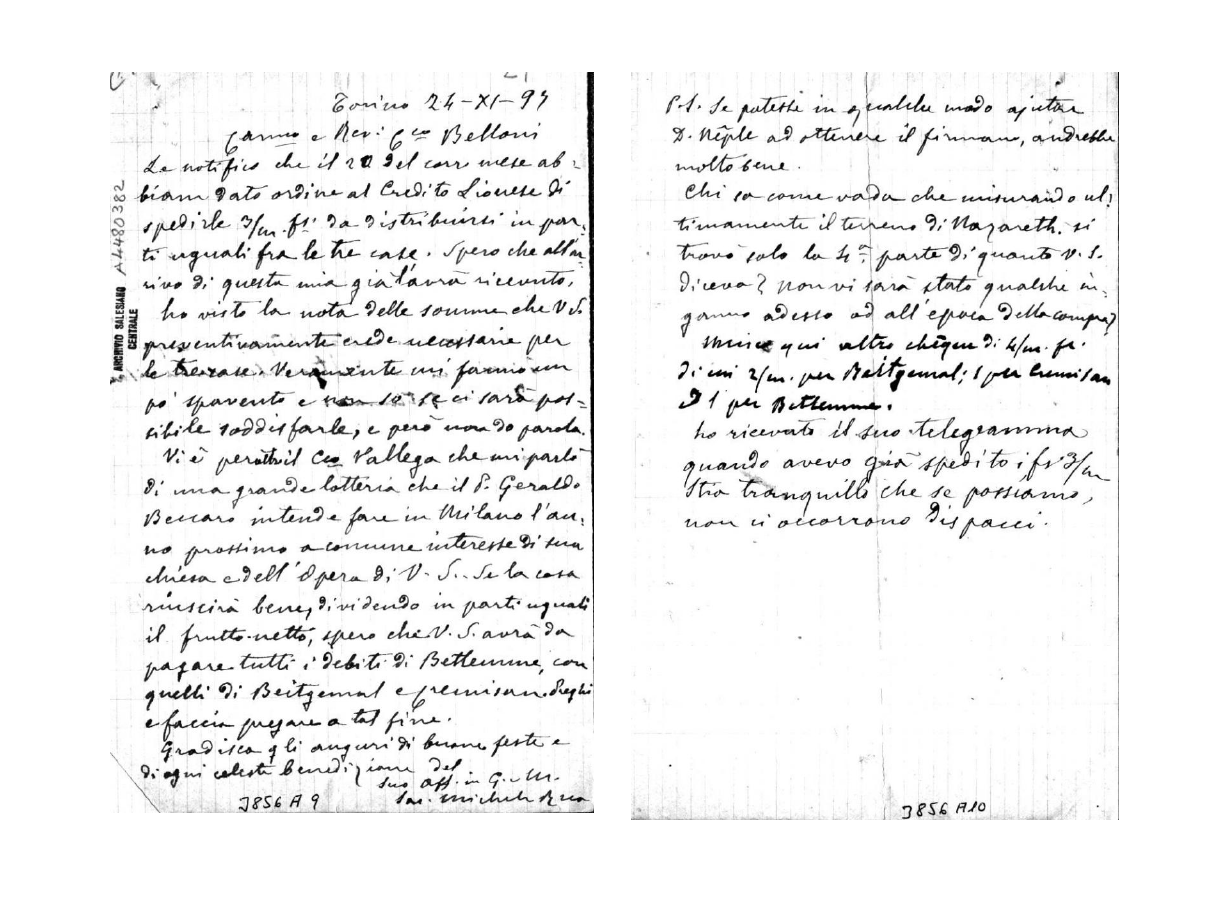 Torino 24-XI-97
Carmo e Rev: Cco Belloni
Le notifico che il 20 del corr mese ab=
biam dato ordine al Credito Lionese di
spedirle 3/m. fs. da distribuirsi in par=
ti uguali fra le tre case. Spero che all'ar=
rivo di questa mia già l'avrà ricevuto.
ho visto la nota delle somme che V. S.
preventivamente crede necessarie per
le tre case. Veramente mi fanno un
po' spavento e non so se ci sarà pos=
sibile soddisfarle, e però non do parola.
Vi è però il Cco Vallega che mi parlò
di una grande lotteria che il P. Geraldo
Beccaro intende fare in Milano l'an=
no prossimo a comune interesse di sua
chiesa e dell'Opera di V. S. Se la cosa
riuscirà bene, dividendo in parti uguali
il frutto netto, spero che V. S. avrà da
pagare tutti i debiti di Betlemme, con
quelli di Beitgemal e Cremisan. Preghi
e faccia pregare a tal fine.
Gradisca gli auguri di buone feste e
di ogni celeste benedizione del
Suo aff. in G. e M.
Sac. Michele Rua
J856 A 9
A4480382
ARCHIVIO SALESIANO
CENTRALE
P.S. Se potesse in qualche modo ajutare
D. Nèple ad ottenere il firmano, andrebbe
molto bene.
Chi sa come vada che misurando ul=
timamente il terreno di Nazareth. si
trovò solo la 4.a parte di quanto V. S.
diceva? non vi sarà stato qualche in=
ganno adesso od all'epoca della compra?
qui altro chèque di 4/m. fr.
di cui 2/m. per Beitgemal; 1 per Cremisan
e 1 per Betlemme.
ho ricevuto il suo telegramma
quando avevo già spedito i fs 3/m
Stia tranquillo che se possiamo,
non ci occorrono dispacci.
J856 A10